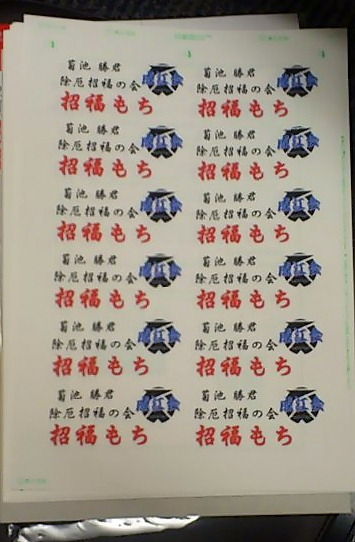 菊池 勝君
除厄招福の会
招福もち
菊池 勝君
除厄招福の会
招福もち
菊池 勝君
除厄招福の会
招福もち
菊池 勝君
除厄招福の会
招福もち
菊池 勝君
除厄招福の会
招福もち
菊池 勝君
除厄招福の会
招福もち
菊池 勝君
除厄招福の会
招福もち
菊池 勝君
除厄招福の会
招福もち
菊池 勝君
除厄招福の会
招福もち
菊池 勝君
除厄招福の会
招福もち
菊池 勝君
除厄招福の会
招福もち
菊池 勝君
除厄招福の会
招福もち